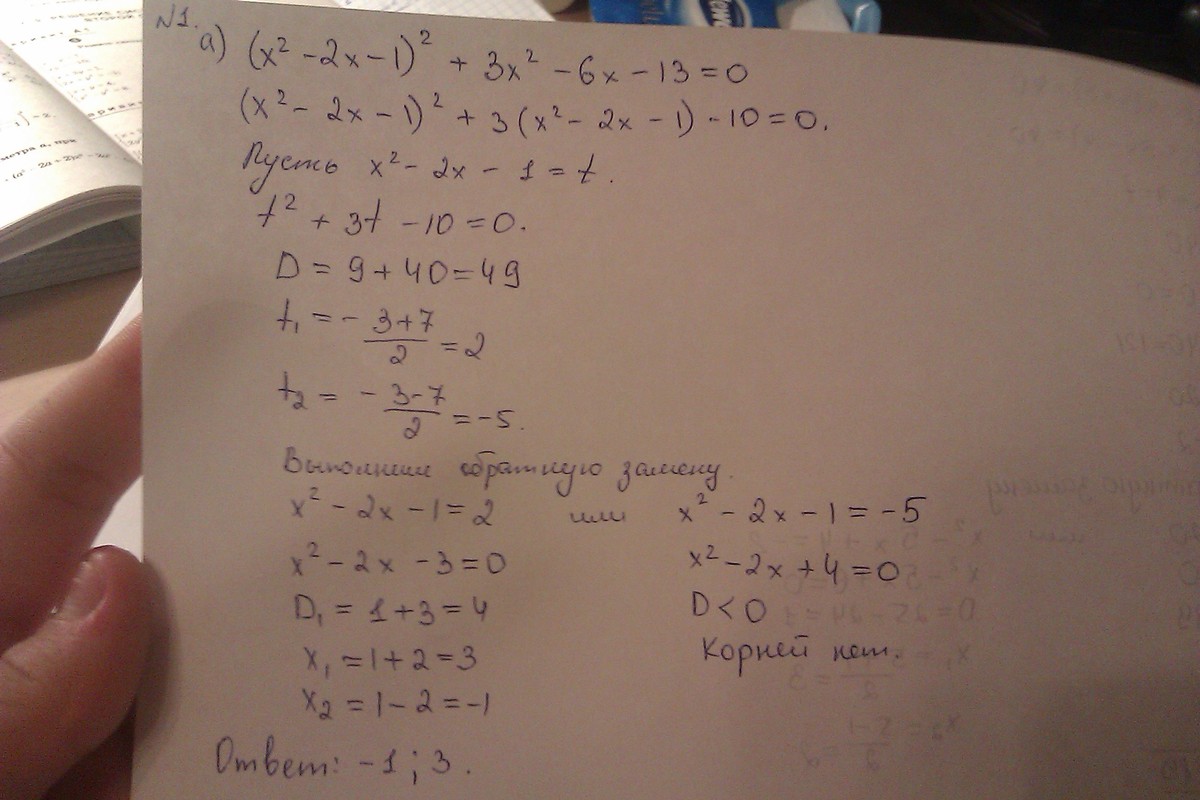 N1.
а) (x² - 2x - 1)² + 3x² - 6x - 13 = 0
(x² - 2x - 1)² + 3(x² - 2x - 1) - 10 = 0.
Пусть x² - 2x - 1 = t.
t² + 3t - 10 = 0.
D = 9 + 40 = 49
t₁ = - (3+7)/2 = 2
t₂ = - (3-7)/2 = -5.
Выполним обратную замену.
x² - 2x - 1 = 2 или x² - 2x - 1 = -5
x² - 2x - 3 = 0 x² - 2x + 4 = 0
D₁ = 1 + 3 = 4 D < 0
x₁ = 1 + 2 = 3 Корней нет.
x₂ = 1 - 2 = -1
Ответ: -1; 3.